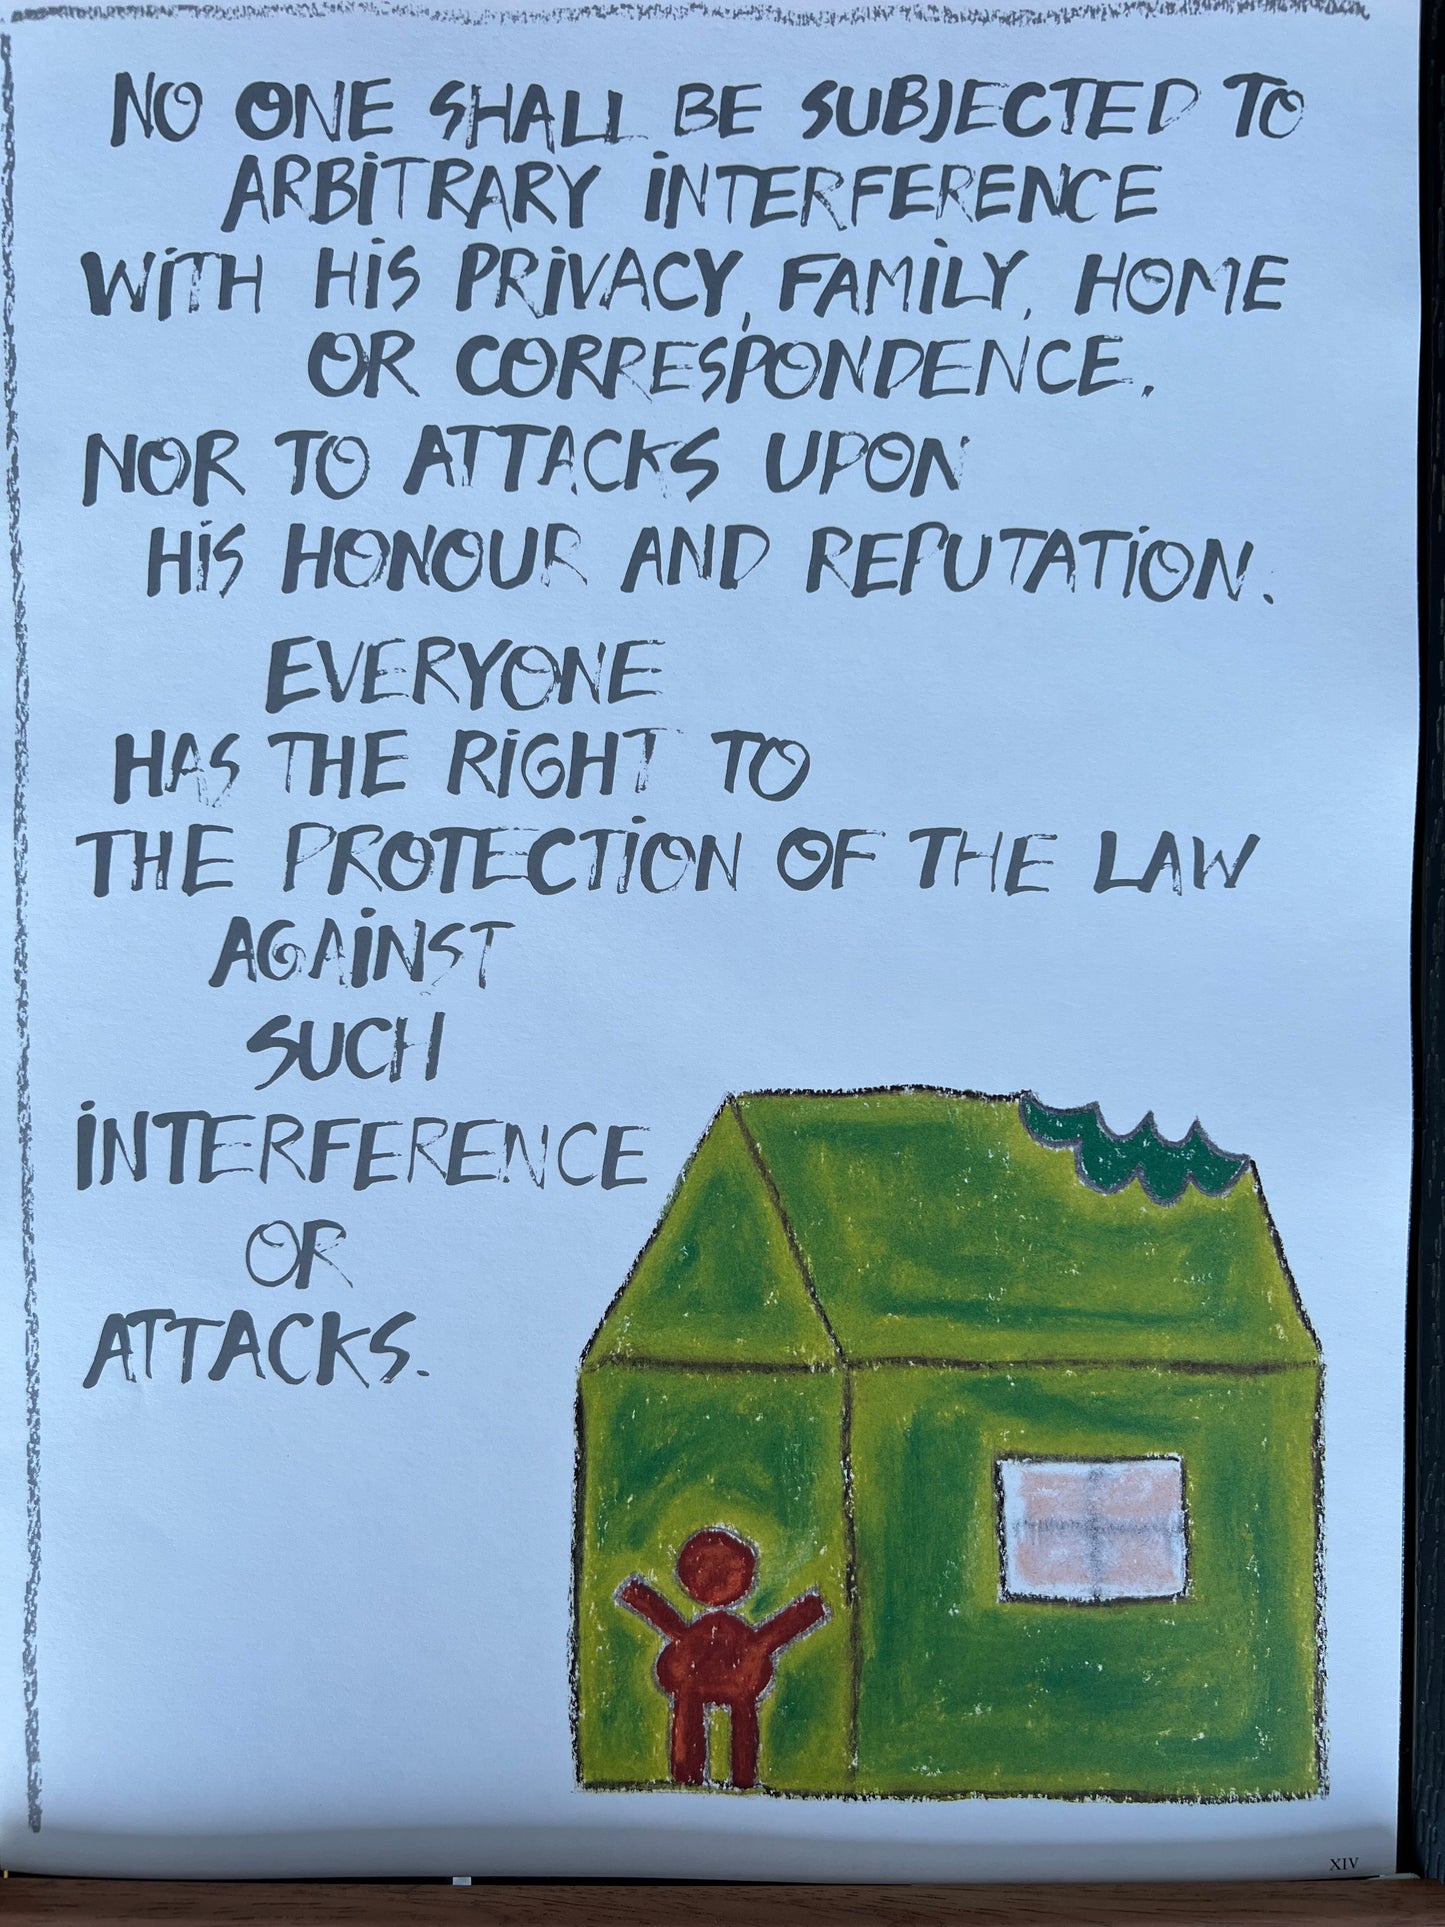 NO ONE SHALL BE SUBJECTED TO
ARBITRARY INTERFERENCE
WITH HIS PRIVACY, FAMILY, HOME
OR CORRESPONDENCE,
NOR TO ATTACKS UPON
HIS HONOUR AND REPUTATION.
EVERYONE
HAS THE RIGHT TO
THE PROTECTION OF THE LAW
AGAINST
SUCH
INTERFERENCE
OR
ATTACKS.
XIV